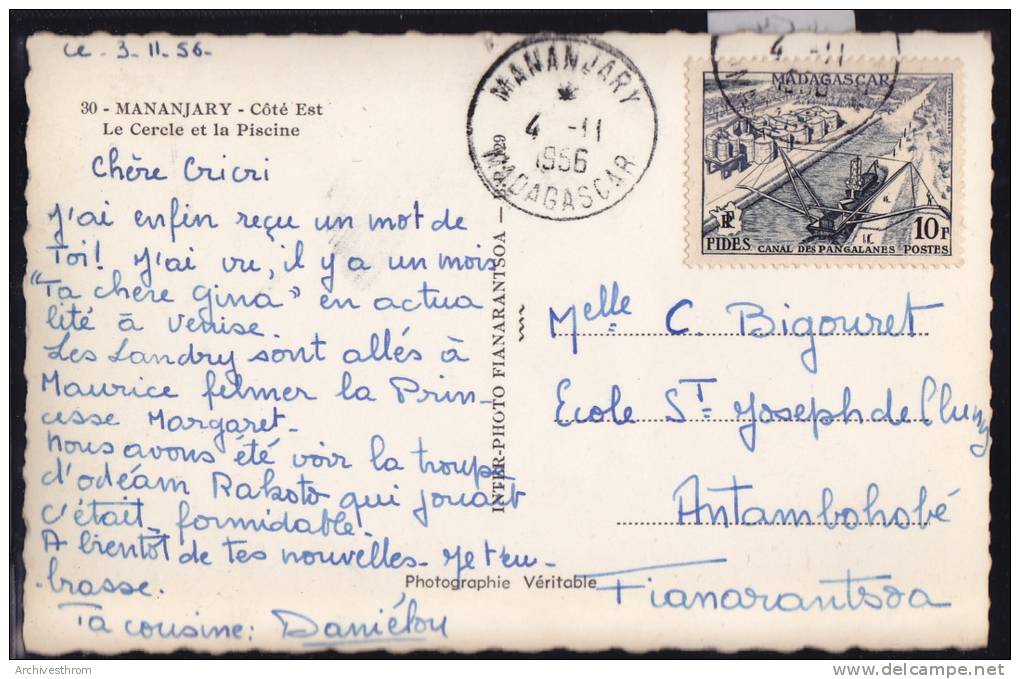 Le 3-11-56-
30 - MANANJARY - Côté Est
Le Cercle et la Piscine
Chère Cricri
J'ai enfin reçu un mot de
Toi! J'ai vu, il y a un mois
"Ta chère Gina" en actua
lité à Venise.
Les Landry sont allés à
Maurice filmer la Prin-
cesse Margaret-
Nous avons été voir la troupe
d'odéam Rakoto qui jouait
c'était formidable-
A bientôt de tes nouvelles- Je t'em-
brasse.
Ta cousine: Daniélou
Photographie Véritable
INTER-PHOTO FIANARANTSOA —
MANANJARY
4 -11
1956
MADAGASCAR
4 -11
1956
MADAGASCAR
RF
FIDES
CANAL DES PANGALANES
POSTES
10F
Melle C. Bigouret
Ecole ST Joseph de Cluny
Antambohobé
Fianarantsoa
Archivesthrom
www.delcampe.net